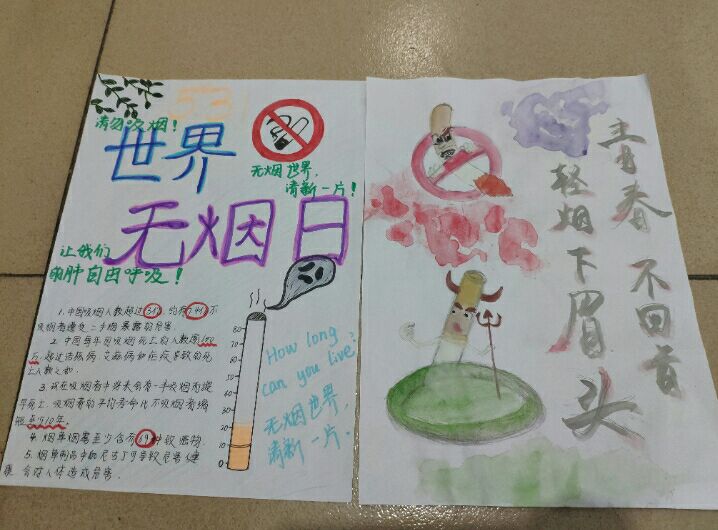 531
请勿吸烟!
世界
无烟世界,
清新一片!
无烟日
让我们
的肺自由呼吸!
1. 中国吸烟人数超过3亿, 约有7.4亿不
吸烟者遭受二手烟暴露的危害
2. 中国每年因吸烟死亡的人数逾100
万, 超过结核病、艾滋病和疟疾导致的死
亡人数之和.
3. 现在吸烟者中将来会有一半吸烟而提
早死亡, 吸烟者的平均寿命比不吸烟者缩
短至少10年.
4. 烟草烟雾至少含有69种致癌物.
5. 烟草制品中的尼古丁可导致危害健
康 会对人体造成危害.
80
70
60
50
40
30
20
10
0
How long
can you live?
无烟世界,
清新一片.
青春不回首
轻烟下眉头